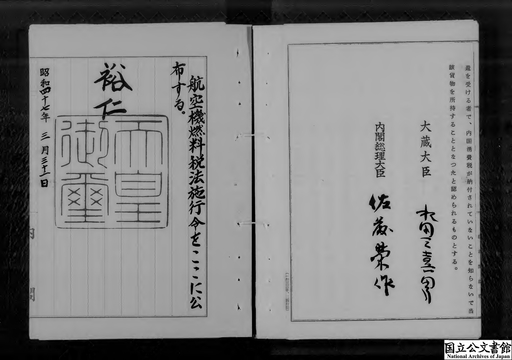 庫を受ける者で、内国消費税が納付されていないことを知らないで当
該貨物を所持することとなつたと認められるものとする。
大蔵大臣
水田三喜男
内閣総理大臣
佐藤榮作
航空機燃料税法施行令をここに公
布する。
裕仁
天皇御璽
昭和四十七年三月三十一日
国立公文書館
National Archives of Japan